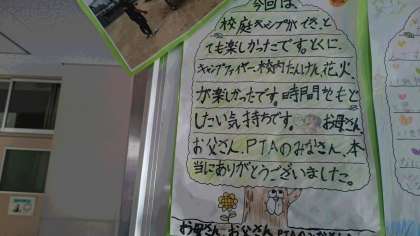 今回は
校庭キャンプができ、と
ても楽しかったです。とくに、
キャンプファイヤー、校内たんけん、花火、
が楽しかったです。時間をもど
したい気持ちです。 お母さん、
お父さん、PTAのみなさん、本
当にありがとうございました。
お母さん、お父さん、PTAのみなさん